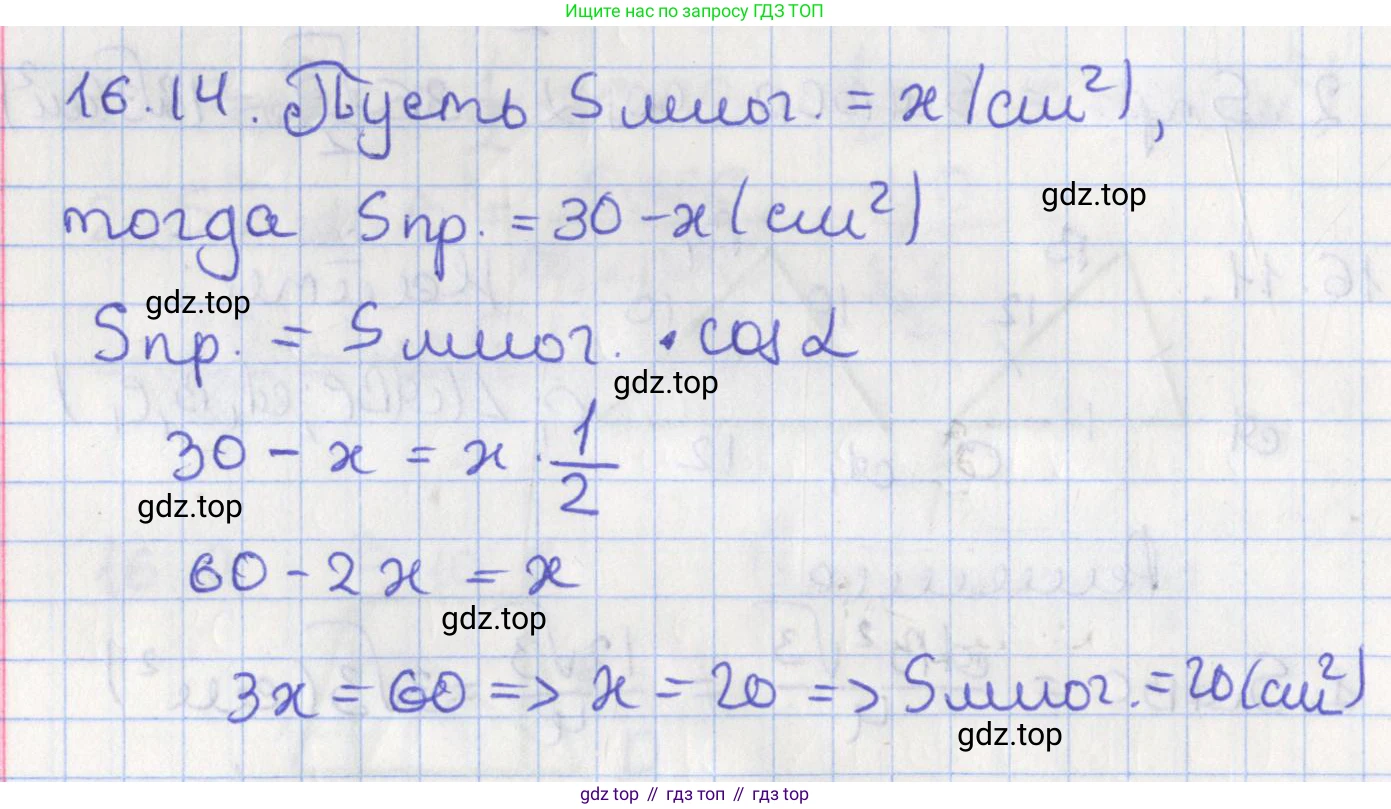 Ищите нас по запросу ГДЗ ТОП
16.14. Пусть Sмног. = x (см²),
gdz.top
тогда Sпр. = 30 - x (см²)
gdz.top
Sпр. = Sмног. · cos α
gdz.top
30 - x = x · 1/2
gdz.top
60 - 2x = x
gdz.top
3x = 60 => x = 20 => Sмног. = 20 (см²)
gdz.top
gdz top // гдз топ // гдз top